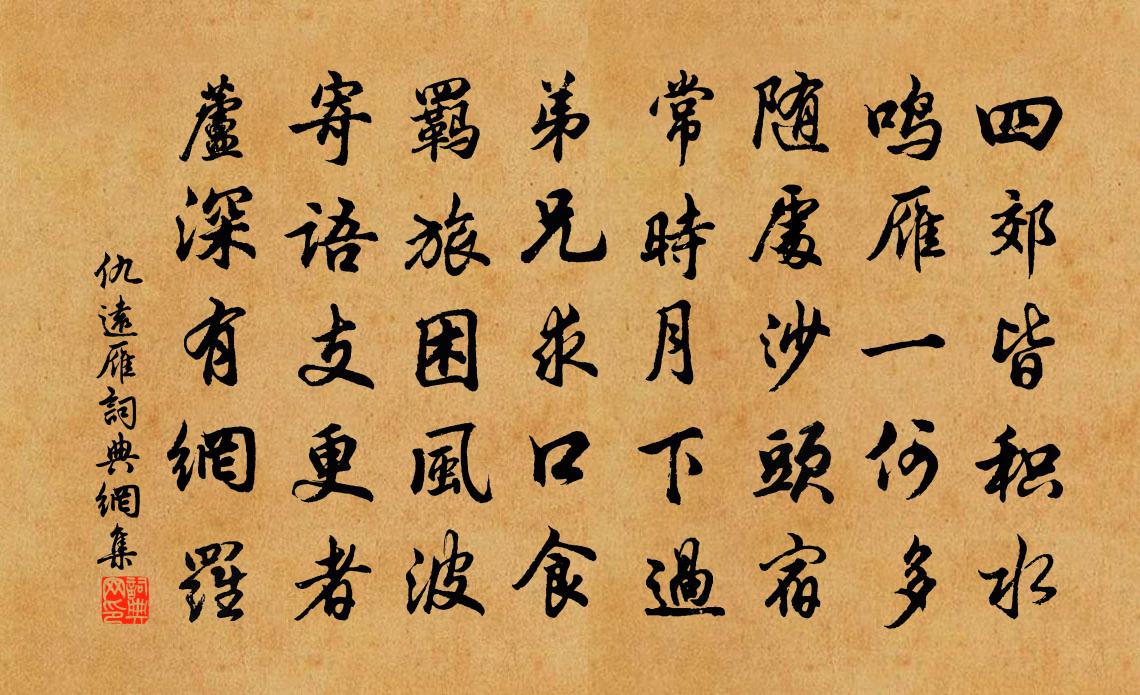 四郊皆积水
鸣雁一何多
随處沙頭宿
常時月下過
弟兄求口食
羇旅困風波
寄語支更者
蘆深有網羅
仇遠雁詞典網集
詞典网印